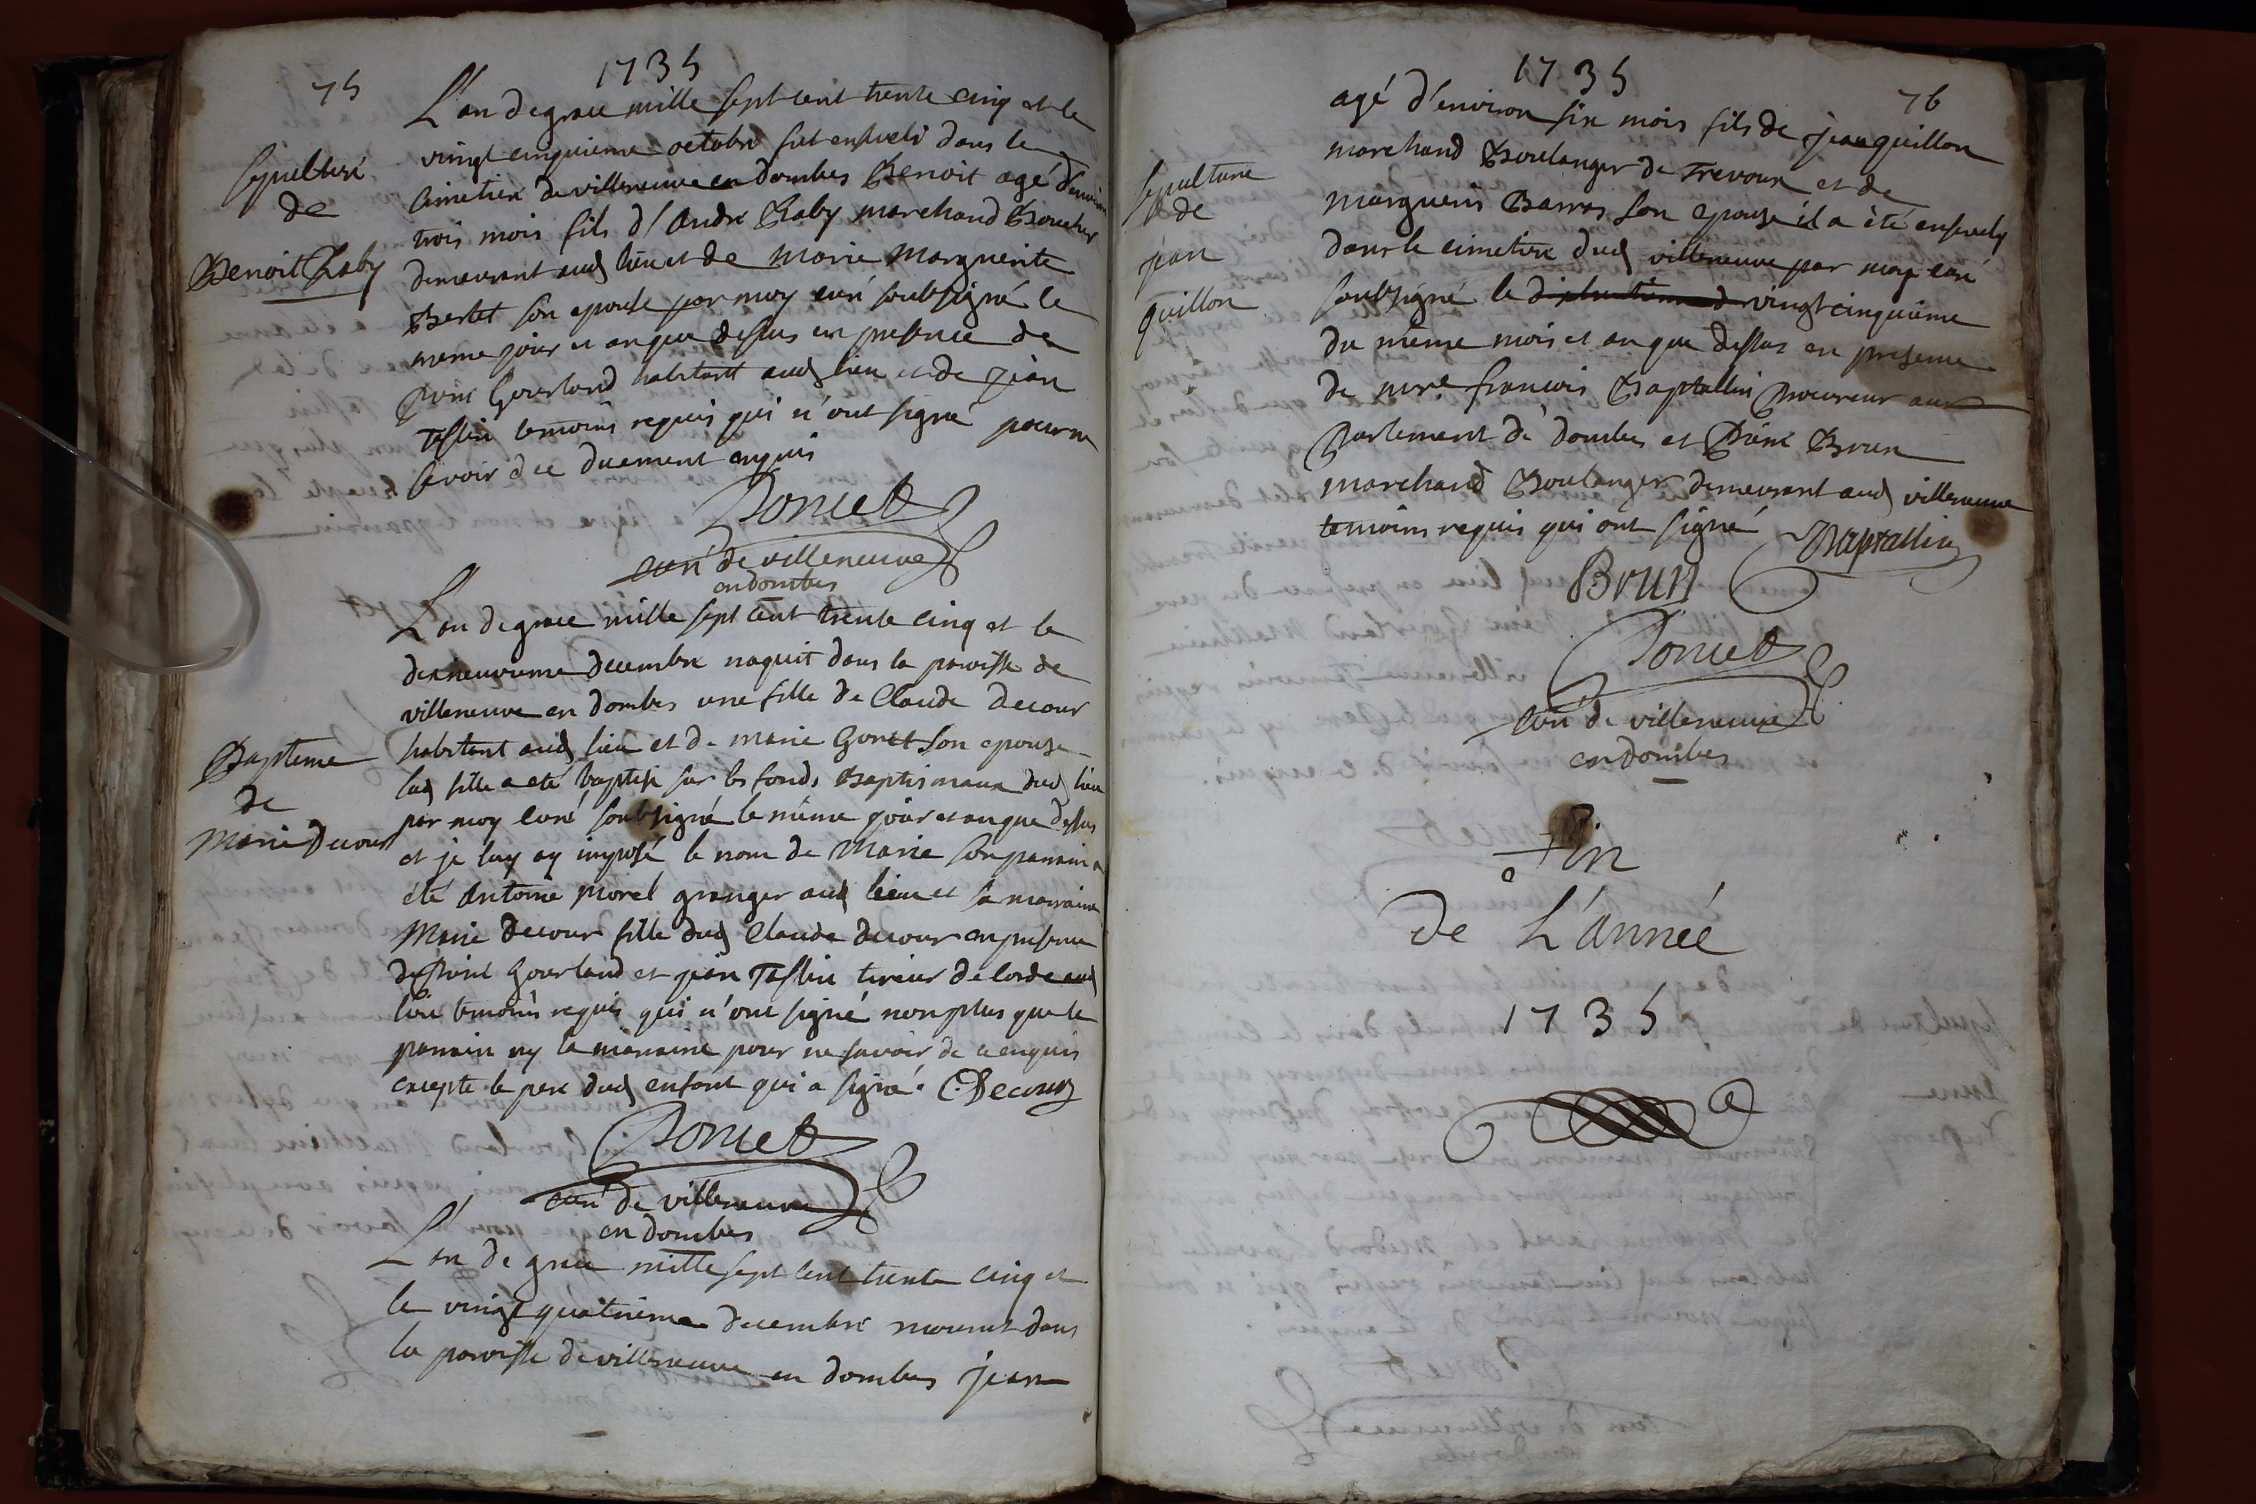 1735
75
L'an de grace mille sept cent trente cinq et le
vingt cinquieme octobre fut ensveli dans le
Sepulture
de
Benoit Raby
cimetiere de villeneuve en dombes Benoit agé d'environ
trois mois fils d'André Raby marchand Boucher
demeurant aud lieu et de Marie Marguerite
Berlet son epouse par moy curé soubsigné le
meme jour et an que dessus en presence de
Gourland habitant aud lieu et de jean
Taslin temoins requis qui n'ont signé pour ne
scavoir de ce duement enquis
Poncet
curé de villeneuve
en dombes
L'an de grace mille sept cent trente cinq et le
dixneuvieme decembre naquit dans la paroisse de
villeneuve en dombes une fille de Claude Decour
Bapteme
de
Marie Decour
habitant aud lieu et de marie Goret son epouse
lad fille a eté baptisé sur les fonds Baptismaux dud lieu
par moy curé soubsigné le même jour et an que dessus
et je luy ay imposé le nom de Marie son parrain a
été Antoine Morel granger aud lieu et sa marraine
Marie Decour fille dud Claude Decour en presence
de Gourland et jean Taslin tireur de corde aud
lieu temoins requis qui n'ont signé non plus que le
parrain ny la marraine pour ne savoir de ce enquis
excepte le pere dud enfant qui a signé. C. Decour
Poncet
curé de villeneuve
en dombes
L'an de grace mille sept cent trente cinq et
le vingt quatrieme decembre mourut dans
la paroisse de villeneuve en dombes jean
1735
76
agé d'environ six mois fils de jean quillon
marchand Boulanger de Trevoux et de
sepulture
de
jean
quillon
Marguerite Barras son epouse il a été ensevely
dans le cimetiere dud villeneuve par moy curé
soubsigné le vingt cinquième
du même mois et an que dessus en presence
de mre françois Baptallin procureur au
Parlement de dombes et Brun
marchand Boulanger demeurant aud villeneuve
temoins requis qui ont signé Baptallin
Brun
Poncet
curé de villeneuve
en dombes
Fin
de L'année
1735